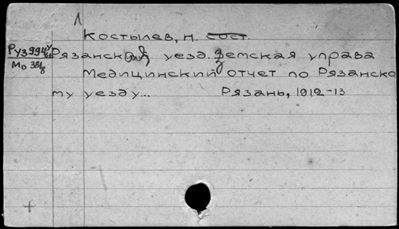 Костылев, Н. сост.
Рязанский уезд. земская управа
Медицинский отчет по Рязанско
му уезду... Рязань, 1912-13